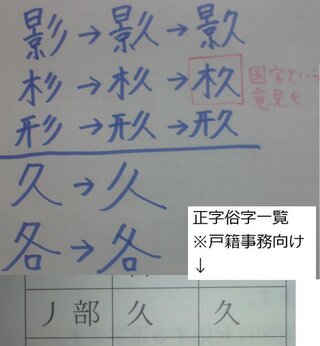 影→→
杉→→杦 国字という
意見も.
形→→
久→久
各→各
正字俗字一覧
※戸籍事務向け
↓
丿部 久 久